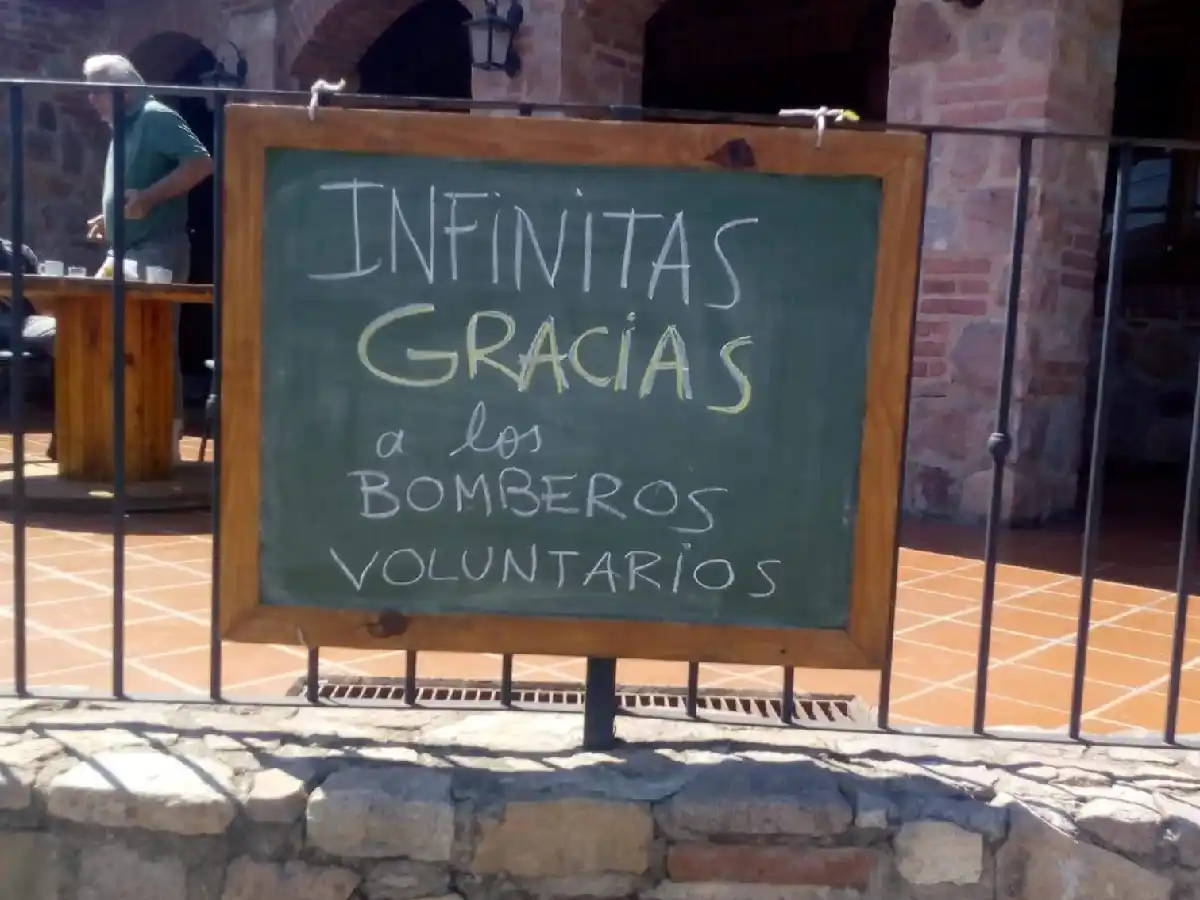 INFINITAS
GRACIAS
a los
BOMBEROS
VOLUNTARIOS